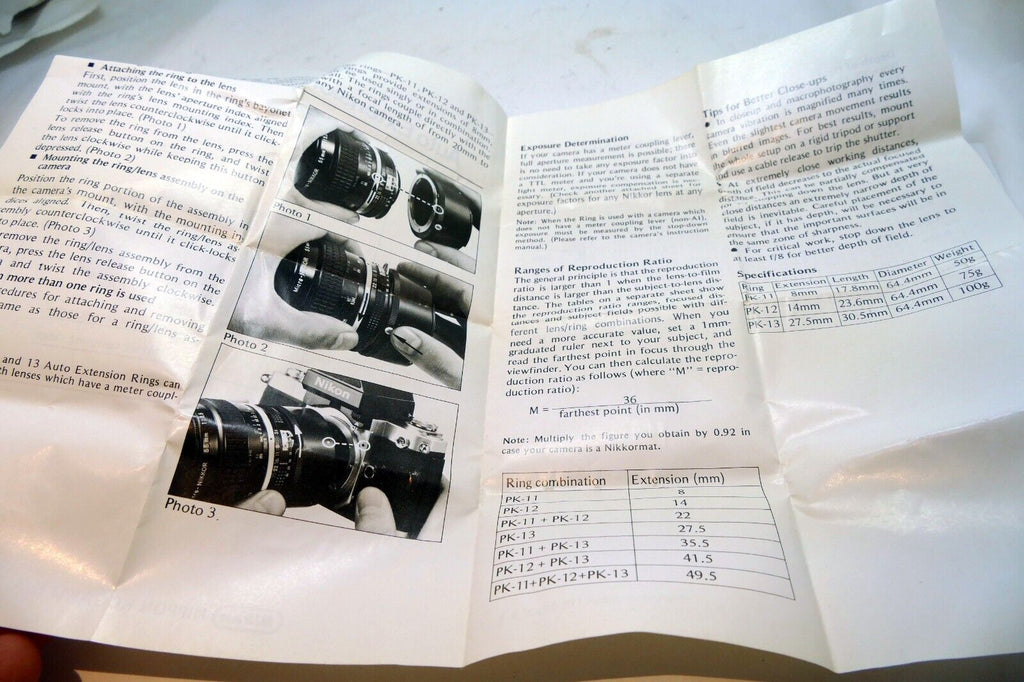 ▪ Attaching the ring to the lens
First, position the lens in the ring's bayonet
mount, with the lens' aperture index aligned
with the ring's lens mounting index. Then
twist the lens counterclockwise until it click-
locks into place. (Photo 1)
To remove the ring from the lens, press the
lens release button on the ring, and twist
the lens clockwise while keeping this button
depressed. (Photo 2)
▪ Mounting the ring/lens assembly on the
camera
Position the ring portion of the assembly in
the camera's mount, with the mounting in-
dices aligned. Then, twist the ring/lens as-
embly counterclockwise until it click-locks
place. (Photo 3)
remove the ring/lens assembly from the
ra, press the lens release button on the
and twist the assembly clockwise.
more than one ring is used
cedures for attaching and removing
ame as those for a ring/lens as-
and 13 Auto Extension Rings can
h lenses which have a meter coupl-
rings—PK-11, PK-12 and PK-13—
provide extensions of
used singly or in combination,
The rings couple directly with
any Nikon focal length of from 20mm to
camera.
Photo 1
Photo 2
Nikon
Photo 3.
Exposure Determination
If your camera has a meter coupling lever,
full aperture measurement is possible; there
is no need to take any exposure factor into
consideration. If your camera does not have
a TTL meter or you're using a separate
light meter, exposure compensation is neces-
sary. (Check your attachment table for
exposure factors for any Nikkor lens at any
aperture.)
Note: When the Ring is used with a camera which
does not have a meter coupling lever (non-AI),
exposure must be measured by the stop-down
method. (Please refer to the camera's instruction
manual.)
Ranges of Reproduction Ratio
The general principle is that the reproduction
ratio is larger than 1 when the lens-to-film
distance is larger than the subject-to-lens dis-
tance. The tables on a separate sheet show
the reproduction ratio ranges, focused dis-
tances and subject fields possible with dif-
ferent lens/ring combinations. When you
need a more accurate value, set a 1mm-
graduated ruler next to your subject, and
read the farthest point in focus through the
viewfinder. You can then calculate the repro-
duction ratio as follows (where "M" = repro-
duction ratio):
M = 36
farthest point (in mm)
Note: Multiply the figure you obtain by 0.92 in
case your camera is a Nikkormat.
Ring combination Extension (mm)
PK-11 8
PK-12 14
PK-11 + PK-12 22
PK-13 27.5
PK-11 + PK-13 35.5
PK-12 + PK-13 41.5
PK-11+PK-12+PK-13 49.5
Tips for Better Close-ups
• In closeup and macrophotography every
camera vibration is magnified many times.
Even the slightest camera movement results
in blurred images. For best results, mount
the whole setup on a rigid tripod or support
and use a cable release to trip the shutter.
• At extremely close working distances,
depth of field decreases to the actual focused
distance
close distances an extremely narrow depth of
field is inevitable. Careful placement of the
subject, if it has depth, will be necessary to
ensure that the important surfaces will be in
the same zone of sharpness.
• For critical work, stop down the lens to
at least f/8 for better depth of field.
Specifications
Ring Extension Length Diameter Weight
PK-11 8mm 17.8mm 64.4mm 50g
PK-12 14mm 23.6mm 64.4mm 75g
PK-13 27.5mm 30.5mm 64.4mm 100g